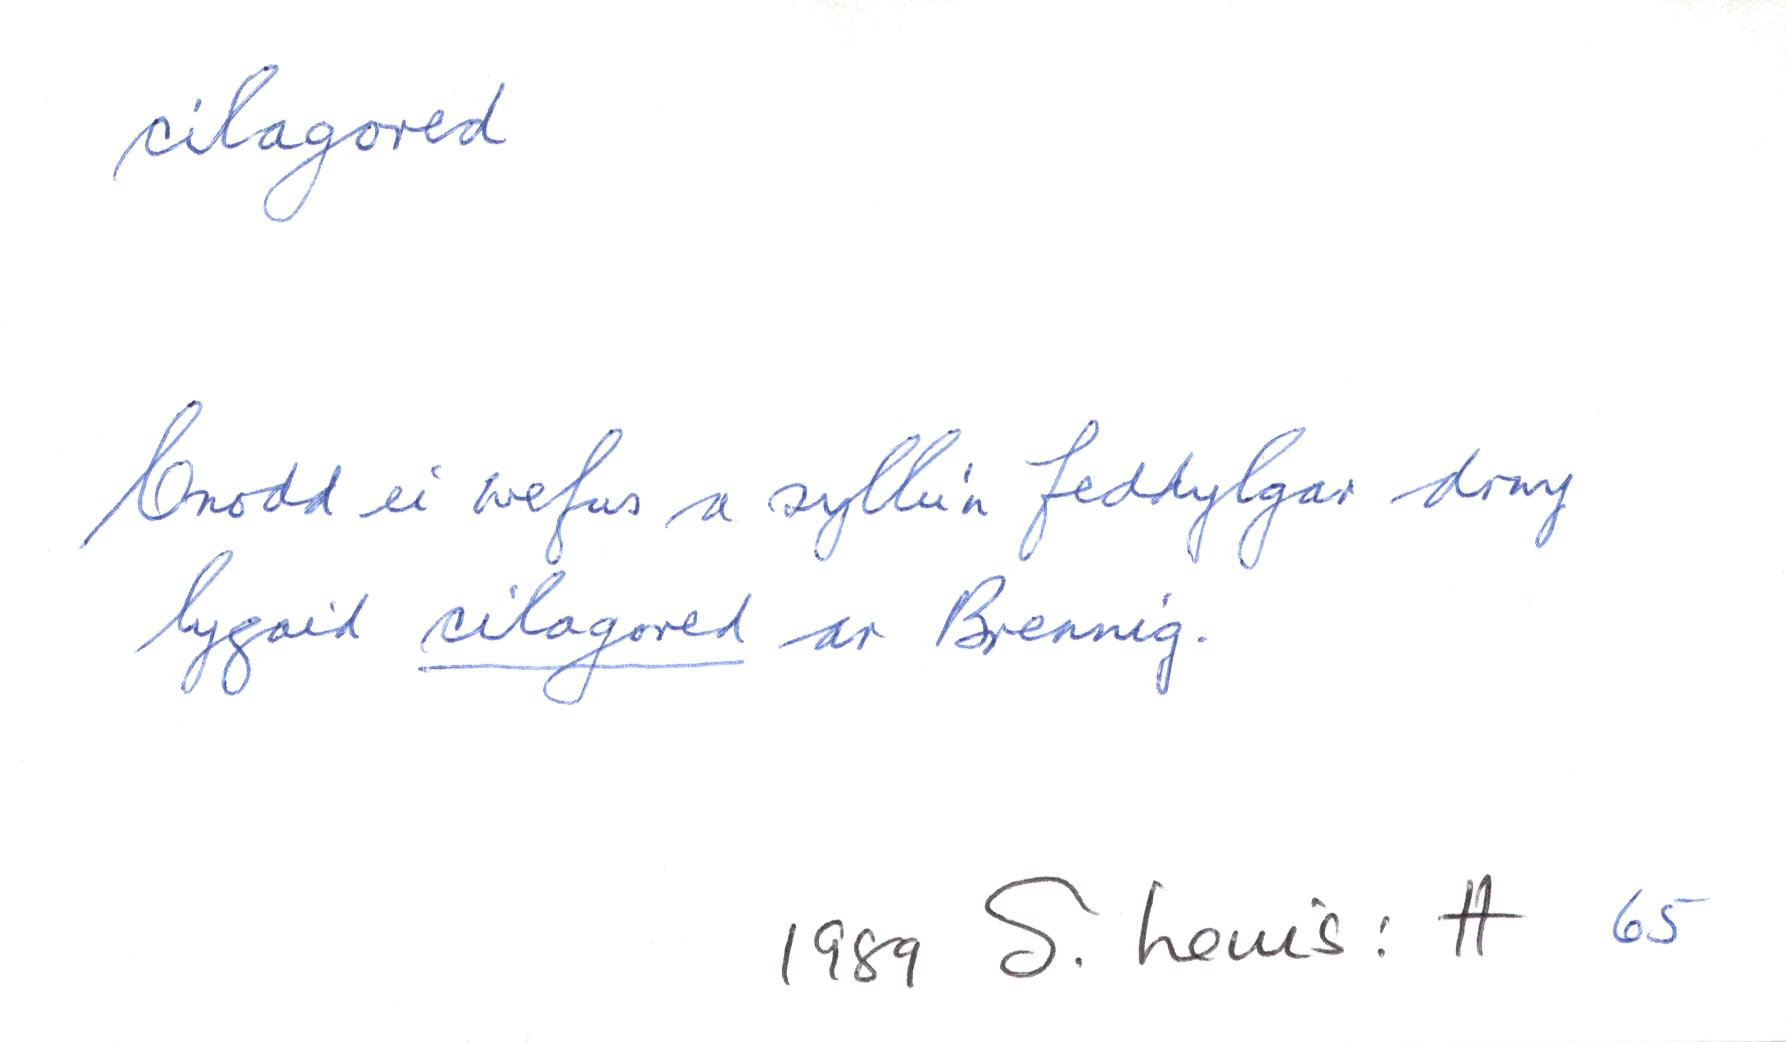 cilagored
Cnodd ei wefus a syllu'n feddylgar drwy
lygaid cilagored ar Brennig.
1989 S. Lewis: H 65